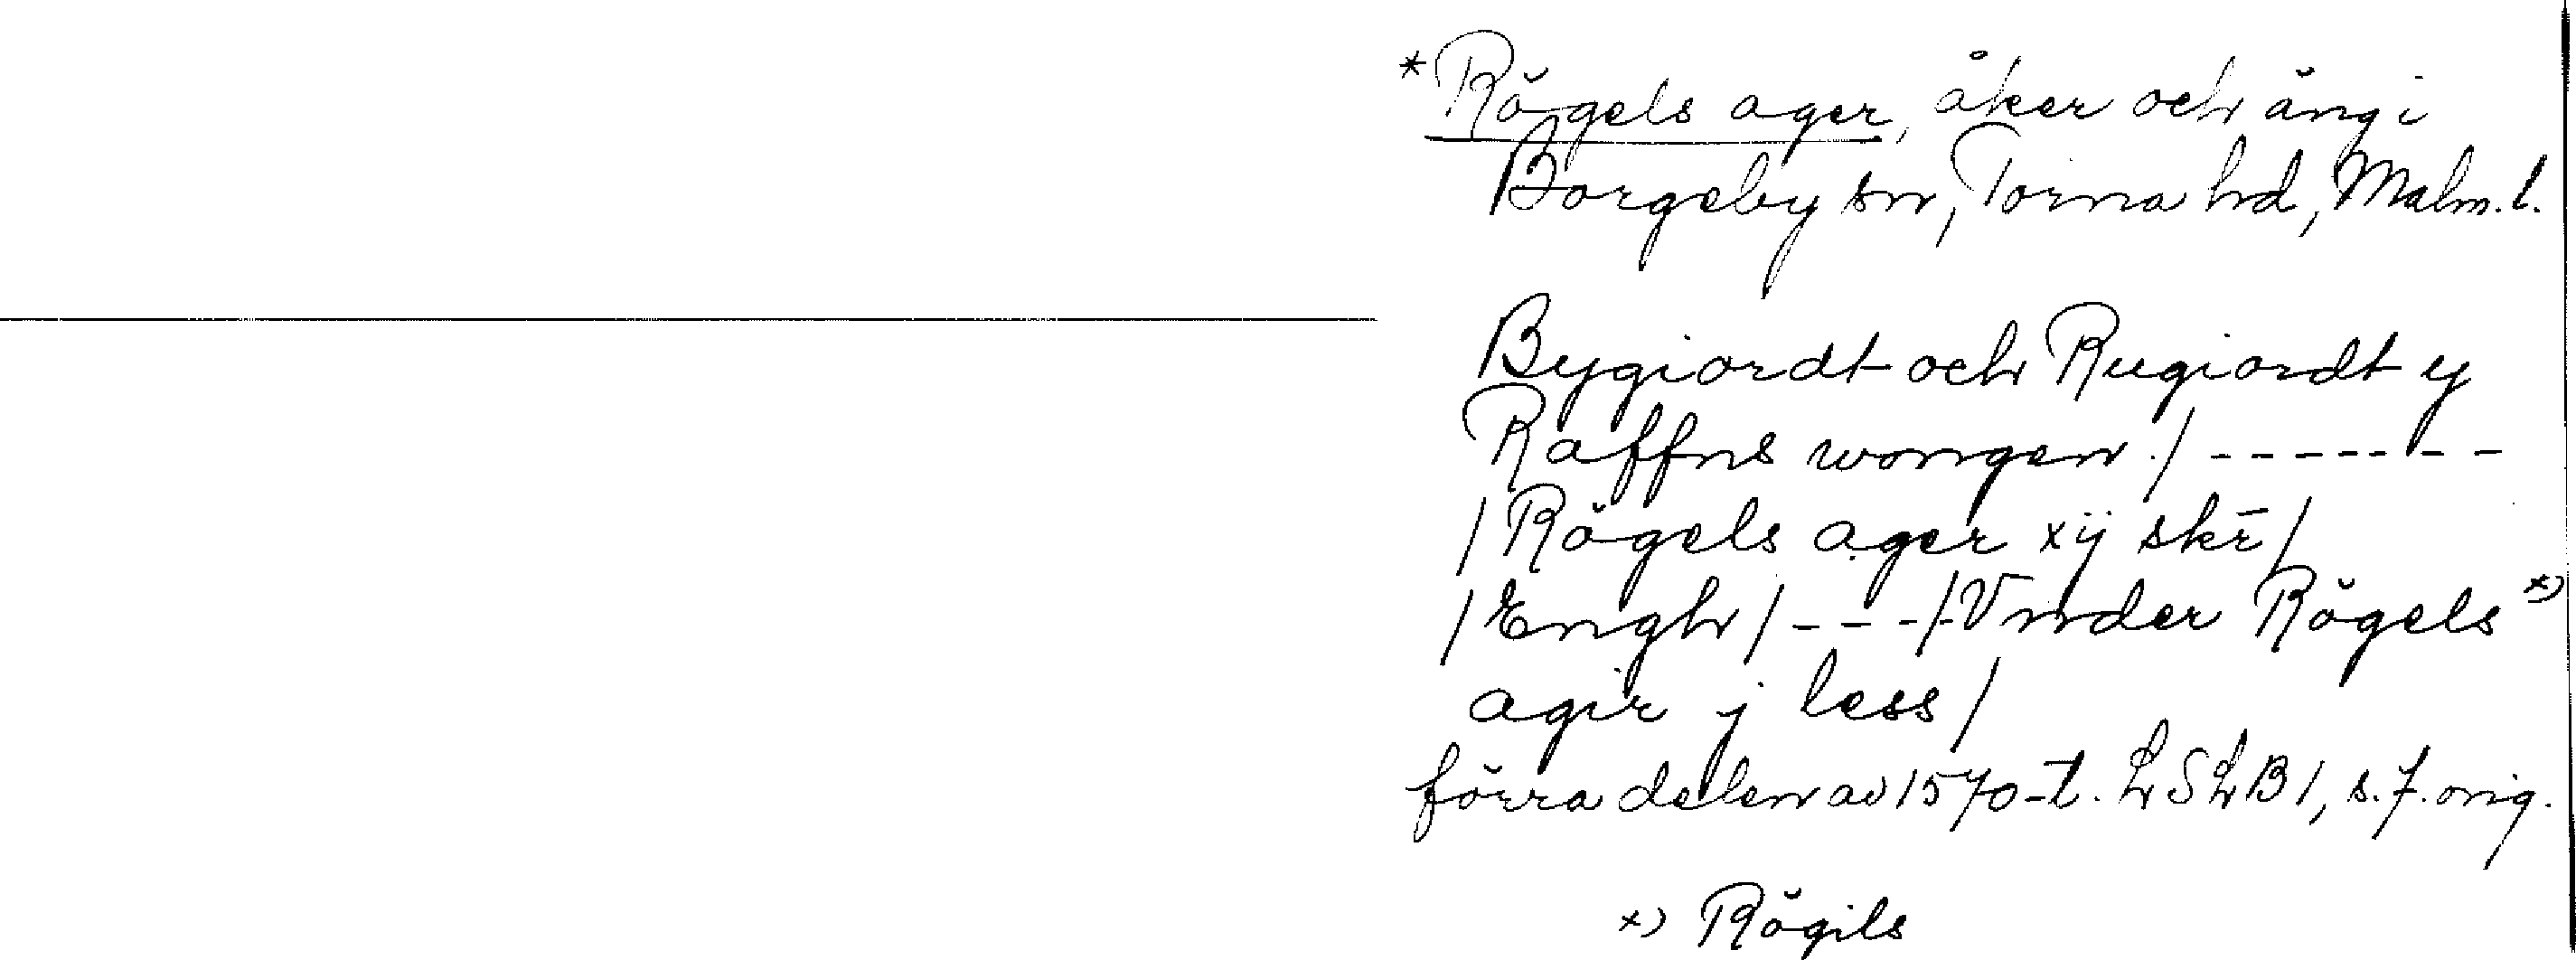 *Rögels ager, åker och äng i
Borgeby sn, Torna hd, Malm. l.
Bygiordt och Rugiordt y
Raffns wongen./-------
/Rögels ager xij skr̄/
/Engh/---/Vnder Rögels x)
agir j less/
förra delen av 1570-t. LSLB 1, s. 7. orig.
x) Rögils